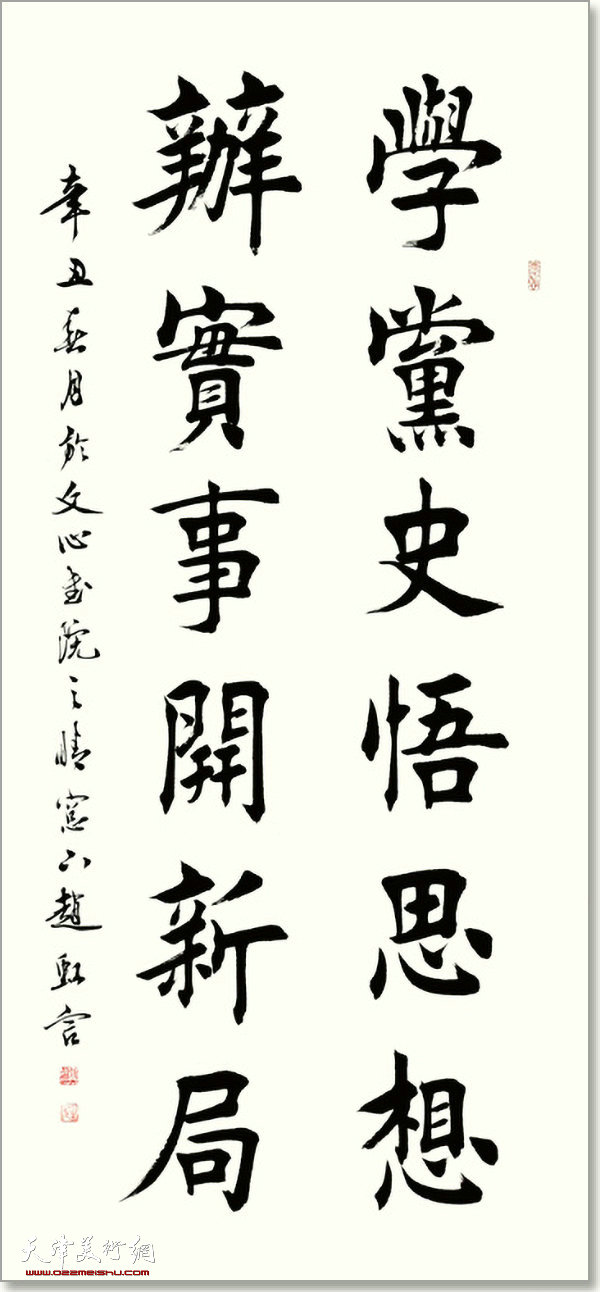 學黨史悟思想
辦實事開新局
辛丑春月於文心書院之晴窗下趙虹言
天津美術網
www.022meishu.com